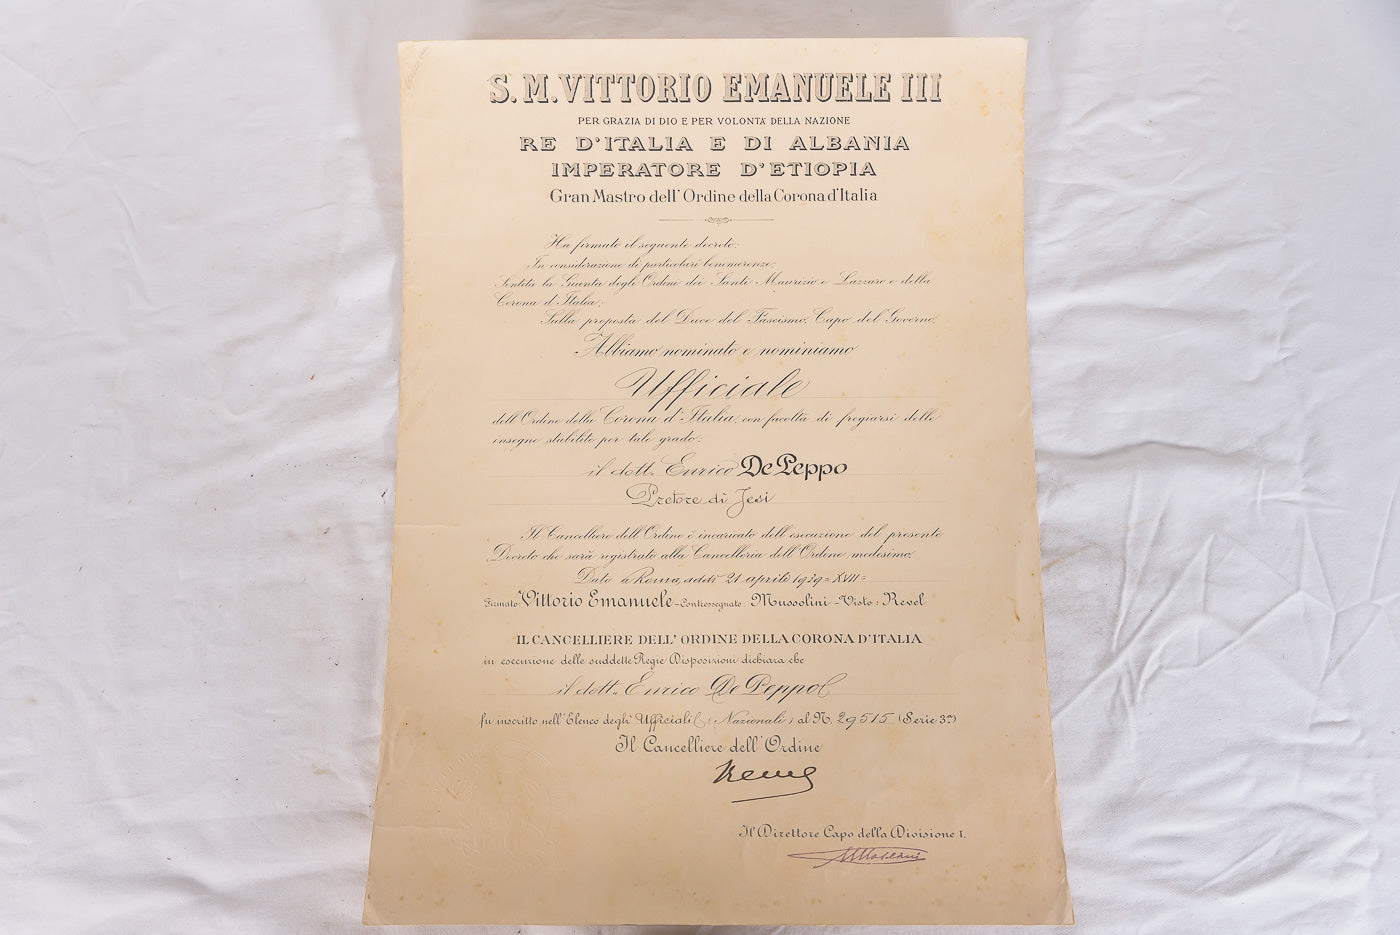 S. M. VITTORIO EMANUELE III
PER GRAZIA DI DIO E PER VOLONTÀ DELLA NAZIONE
RE D'ITALIA E DI ALBANIA
IMPERATORE D'ETIOPIA
Gran Mastro dell'Ordine della Corona d'Italia
Ha firmato il seguente decreto:
In considerazione di particolari benemerenze;
Sentita la Giunta degli Ordini dei Santi Maurizio e Lazzaro e della
Corona d'Italia;
Sulla proposta del Duce del Fascismo, Capo del Governo;
Abbiamo nominato e nominiamo
Ufficiale
dell'Ordine della Corona d'Italia, con facoltà di fregiarsi delle
insegne stabilite per tale grado:
il dott. Enrico De Peppo
Pretore di Jesi
Il Cancelliere dell'Ordine è incaricato dell'esecuzione del presente
Decreto che sarà registrato alla Cancelleria dell'Ordine medesimo.
Dato a Roma, addì 21 aprile 1939=XVII=
Firmato: Vittorio Emanuele - Controssegnato: Mussolini - Visto: Revel
IL CANCELLIERE DELL'ORDINE DELLA CORONA D'ITALIA
in esecuzione delle suddette Regie Disposizioni dichiara che
il dott. Enrico De Peppo
fu inscritto nell'Elenco degli Ufficiali (Nazionali) al N. 29515 (Serie 3ª)
Il Cancelliere dell'Ordine
Revel
Il Direttore Capo della Divisione I.